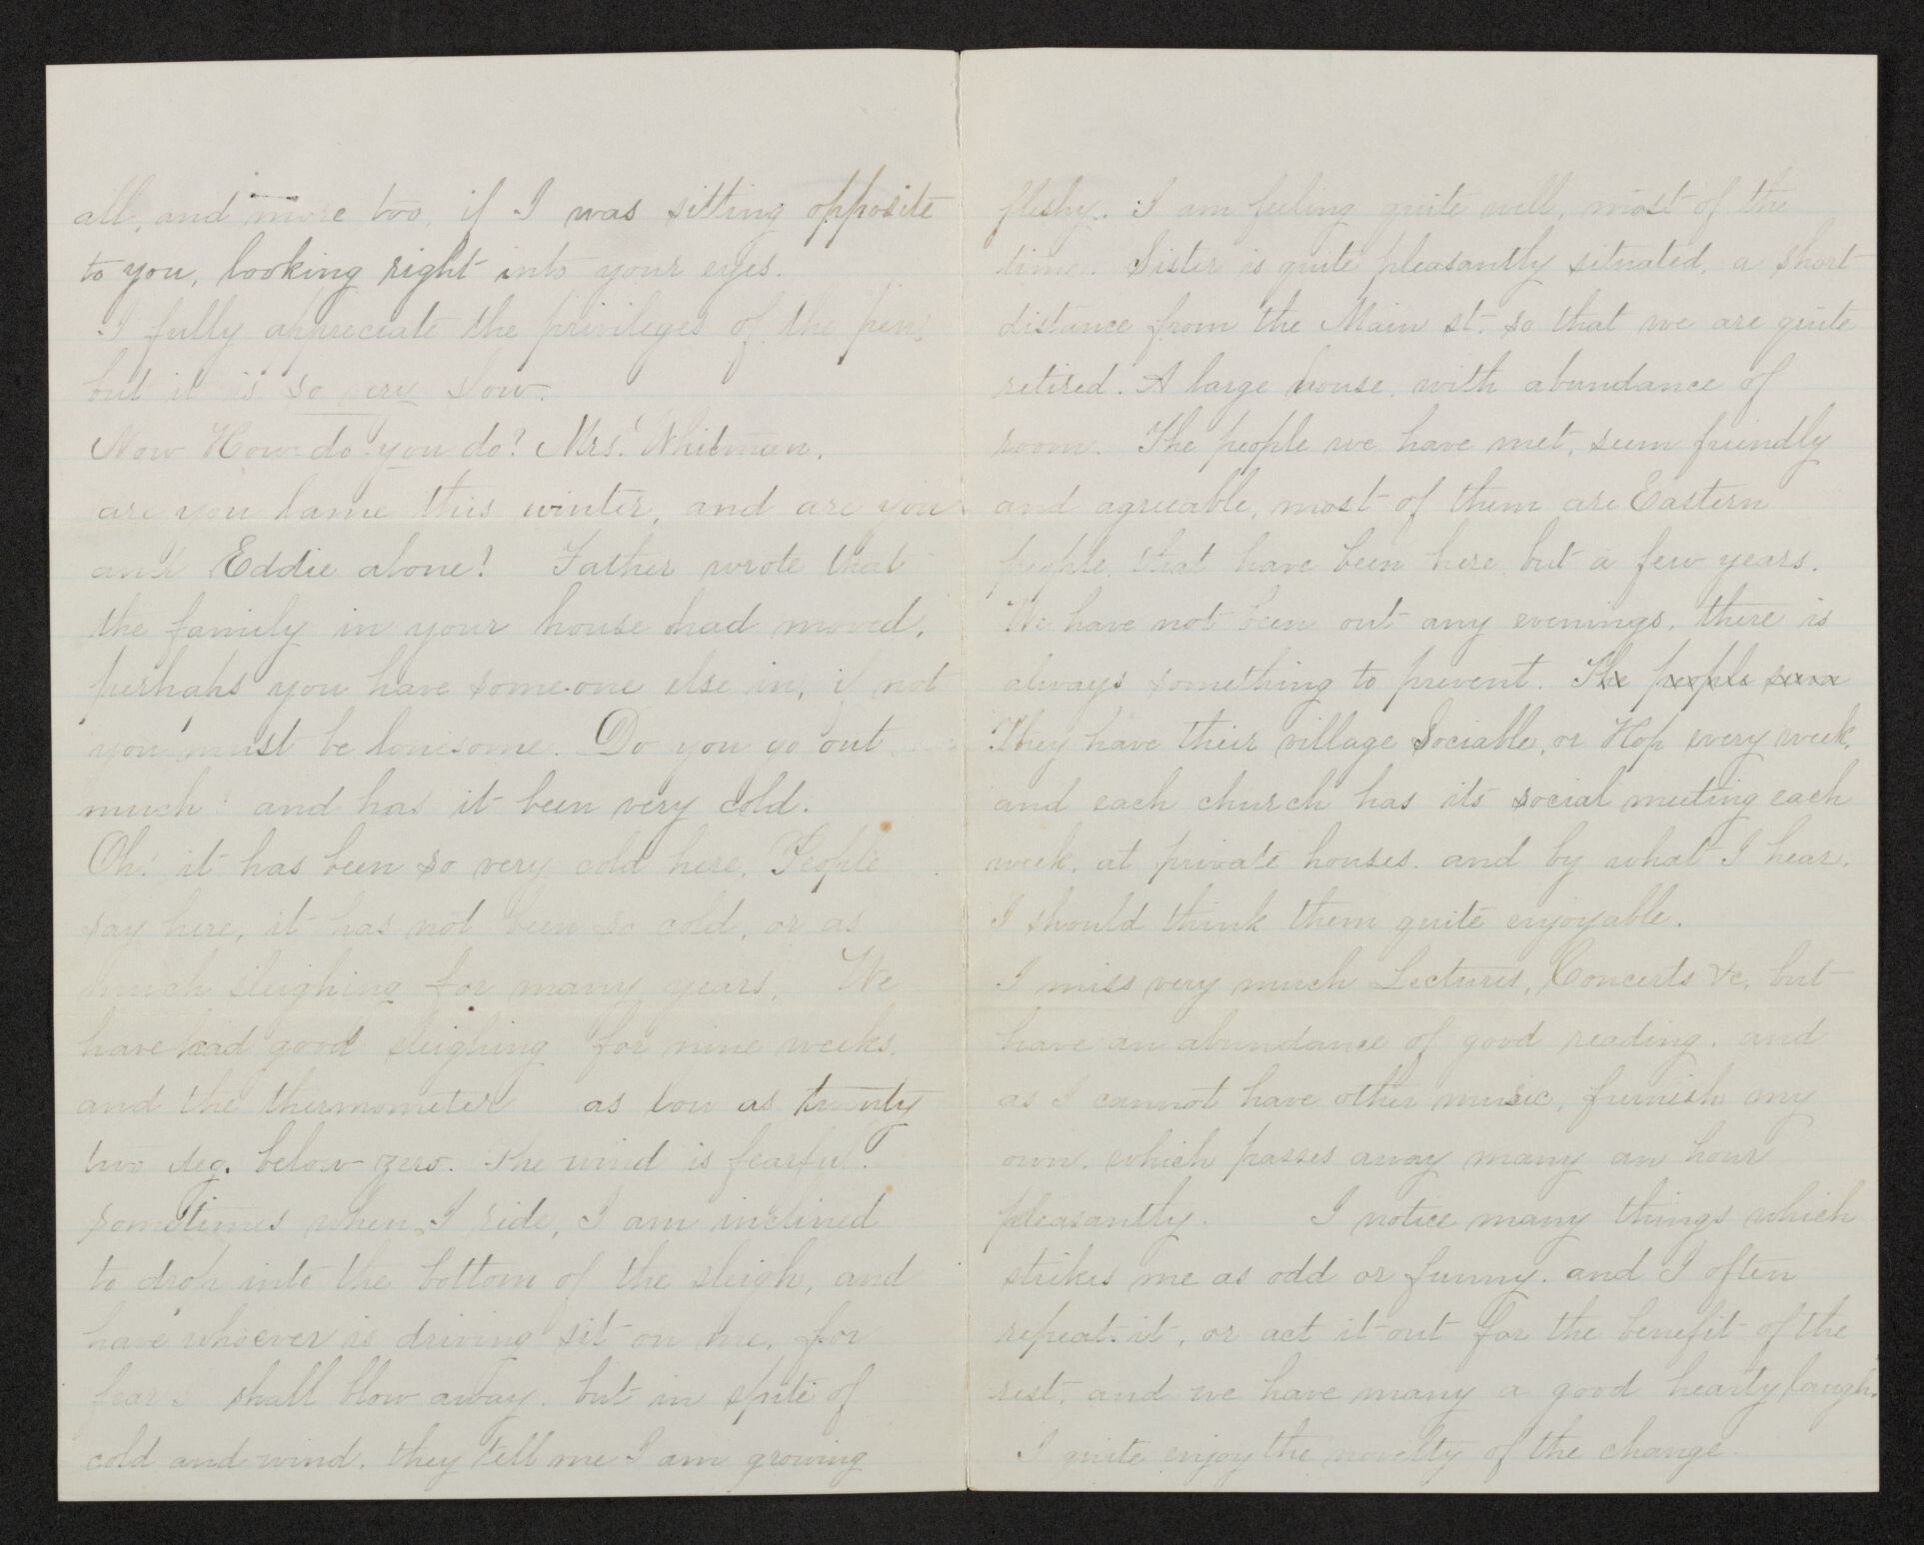 all, and more too, if I was sitting opposite
to you, looking right into your eyes.
I fully appreciate the privileges of the pen,
but it is so very slow.
Now How do you do? Mrs. Whitman.
are you lame this winter, and are you
and Eddie alone! Father wrote that
the family in your house had moved,
perhaps you have some one else in, if not
you must be lonesome. Do you go out
much and has it been very cold.
Oh! it has been so very cold here. People
say here, it has not been so cold, or as
much sleighing for many years. We
have had good sleighing for nine weeks.
and the thermometer as low as twenty
two deg. below zero. The wind is fearful.
sometimes when I ride, I am inclined
to drop into the bottom of the sleigh, and
have whoever is driving sit on me, for
fear I shall blow away. but in spite of
cold and wind. they tell me I am growing
fleshy. I am feeling quite well, most of the
time. Sister is quite pleasantly situated, a short
distance from the Main st. so that we are quite
retired. A large house, with abundance of
room. The people we have met, seem friendly
and agreeable, most of them are Eastern
people, that have been here but a few years.
We have not been out any evenings, there is
always something to prevent. The people seem
They have their village Sociable, or Hop every week,
and each church has its social meeting each
week, at private houses. and by what I hear,
I should think them quite enjoyable.
I miss very much Lectures, Concerts &c, but
have an abundance of good reading. and
as I cannot have other music, furnish my
own, which passes away many an hour
pleasantly. I notice many things which
strikes me as odd or funny. and I often
repeat it, or act it out for the benefit of the
rest, and we have many a good hearty laugh.
I quite enjoy the novelty of the change